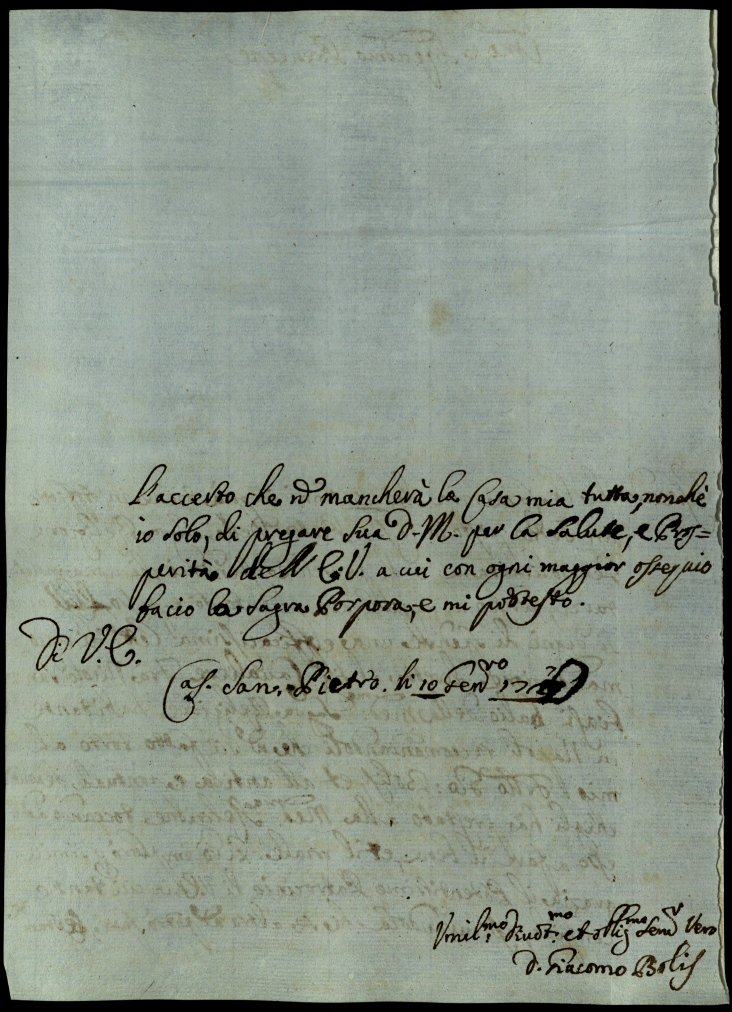 L'accerto che nõ mancherà la Casa mia tutta, nonchè
io solo, di pregare Sua D. M. per la Salute, e Pros=
perità dell' E. V. a cui con ogni maggior ossequio
bacio la Sagra Porpora, e mi protesto.
Di V. E.
Cas. San. Pietro. li 10 Gen.ro
Vmil.mo Diuot.mo et obllig.mo Seru.r Vero
D. Giacomo Bolis